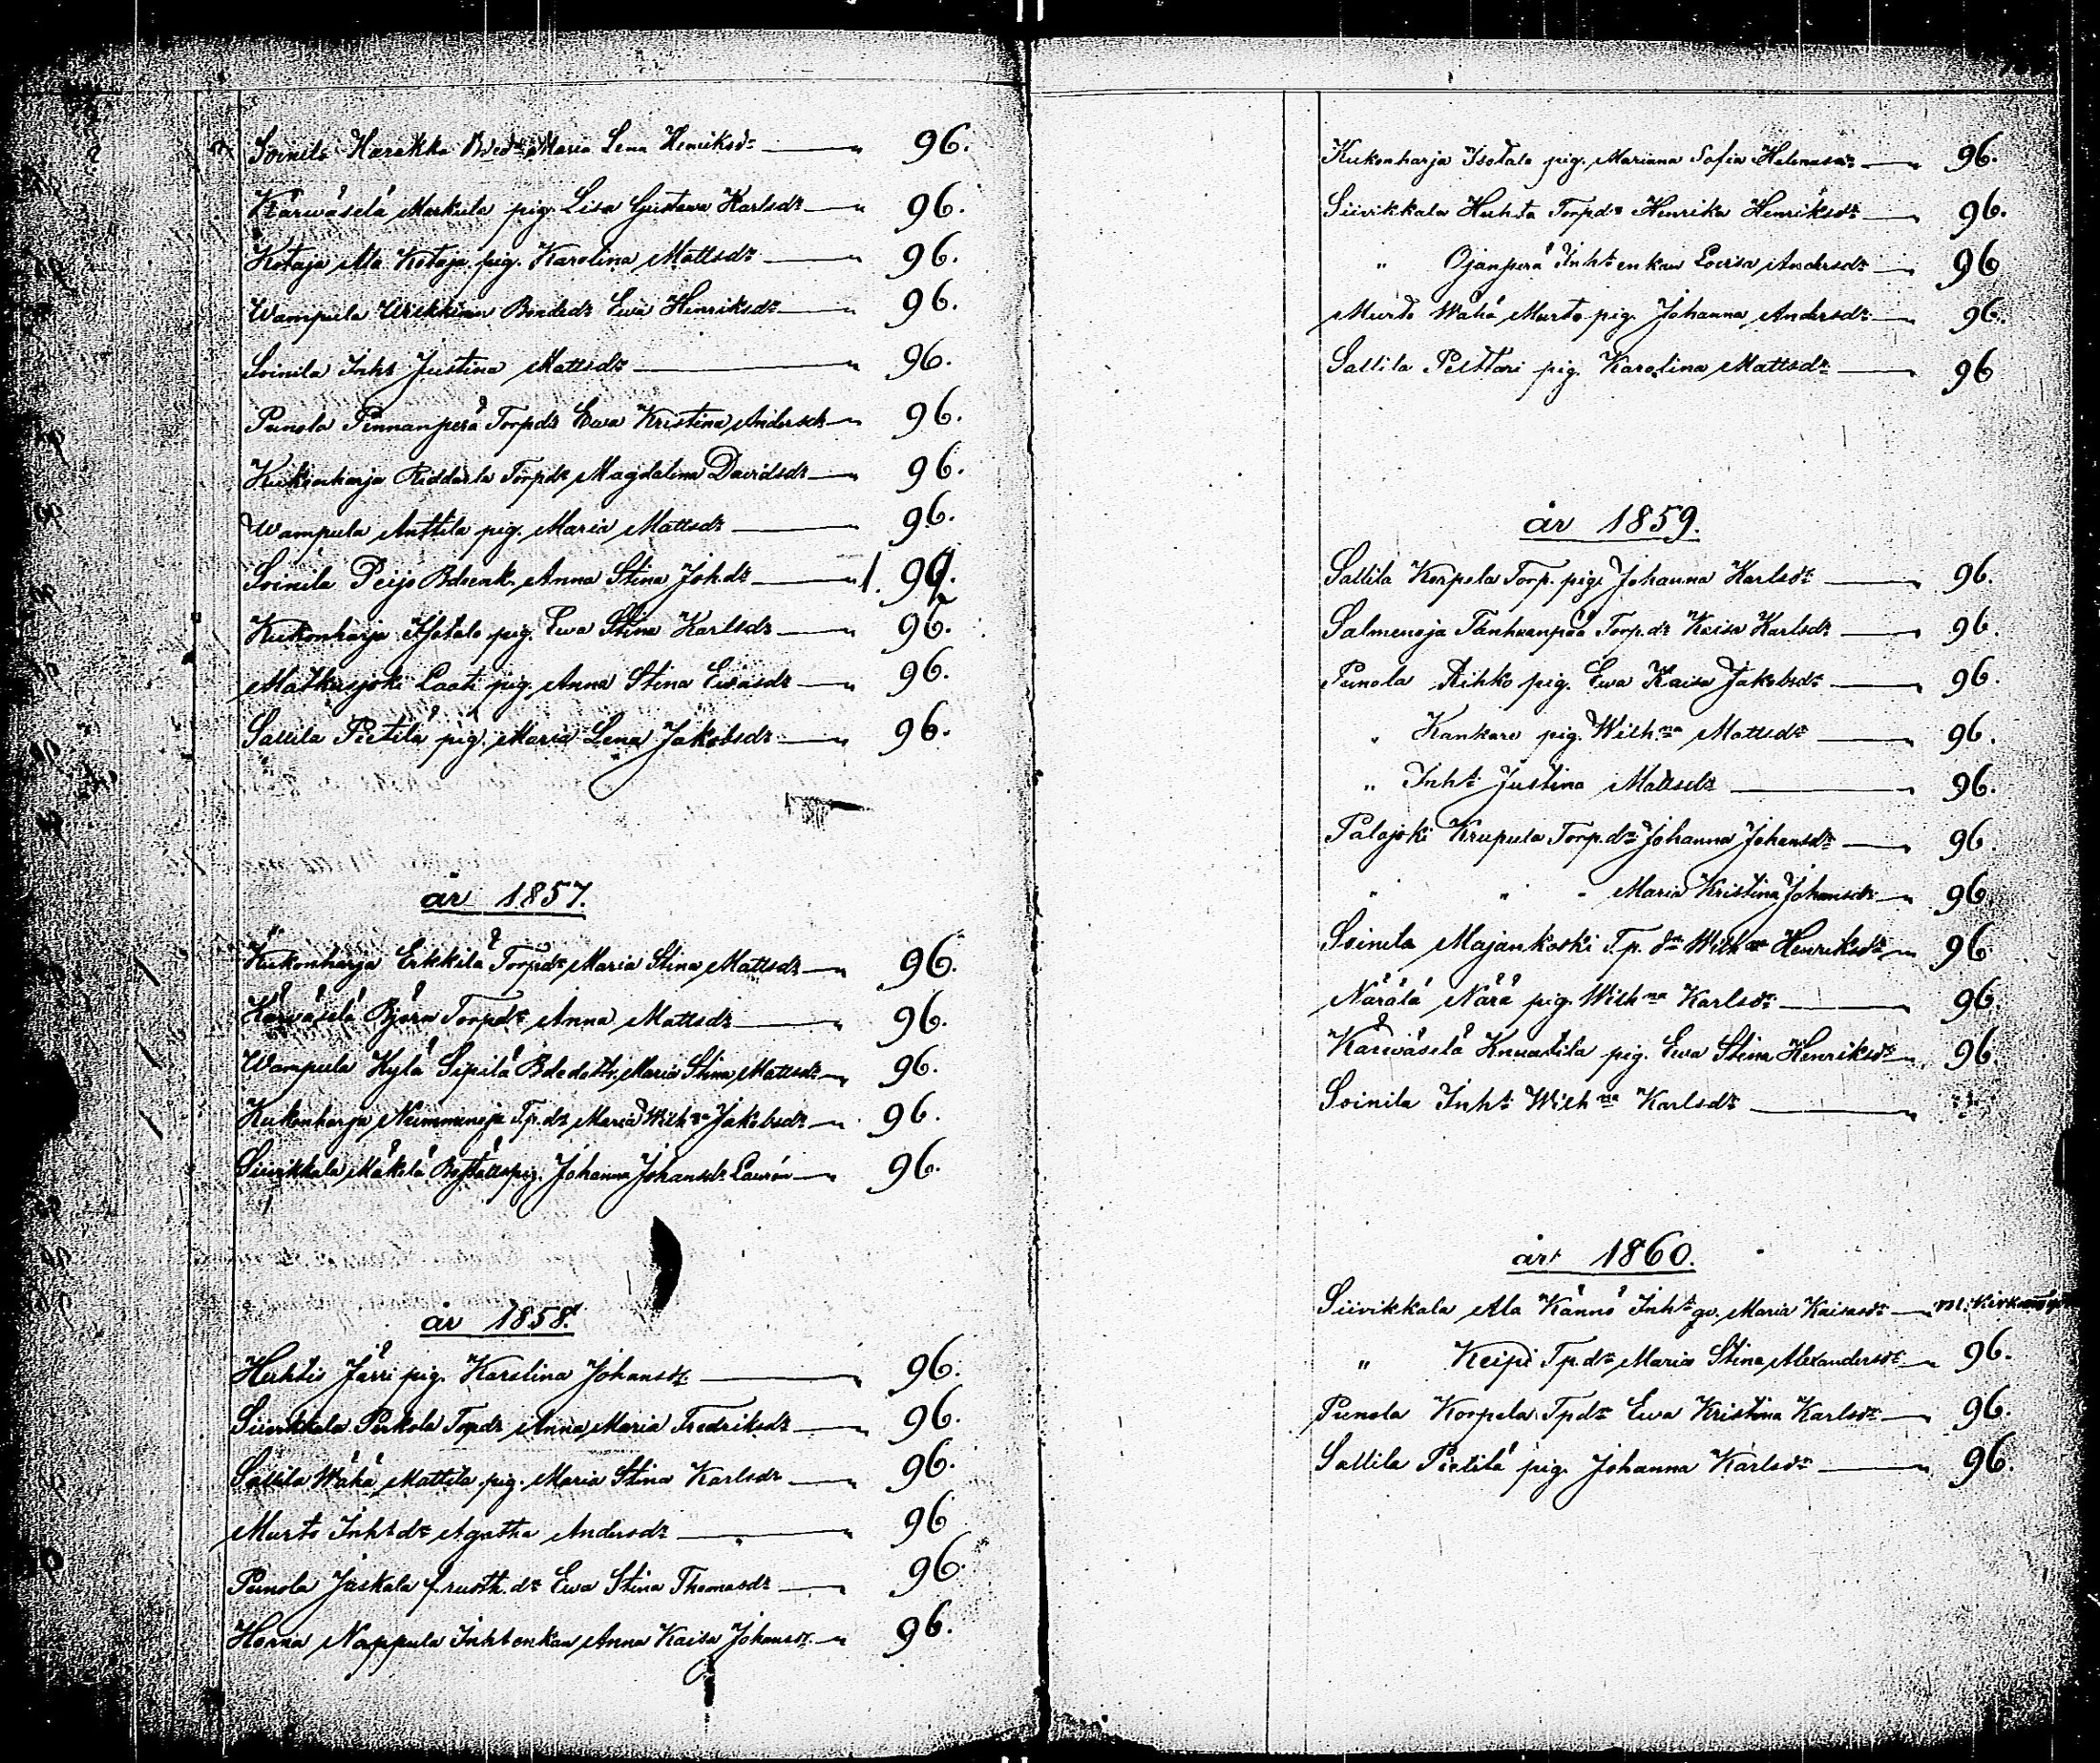 Soinila Harakka Bdedr Maria Lena Henriksdr — " 96.
Kärwäselä Markula pig. Lisa Gustava Karlsdr — " 96.
Kotaja Ala Kotaja pig. Karolina Mattsdr — " 96.
Wampula Uschkinin Bondedr Ewa Henriksdr — " 96.
Soinila Inhs Justina Mattsdr — " 96.
Punola Pinnanperä Torpdr Ewa Kristina Andersdr — " 96.
Kukonharja Riddarla Torpdr Magdalena Davidsdr — " 96.
Wampula Anttila pig. Maria Mattsdr — " 96.
Soinila Peijo Bdeenk. Anna Stina Johdr — "
Kukonharja Isotalo pig. Ewa Stina Karlsdr — " 96.
Matkusjoki Laati pig. Anna Stina Ewasdr — " 96.
Sallila Pietilä pig. Maria Lena Jakobsdr — " 96.
år 1857.
Kukonharja Erkkilä Torpdr Maria Stina Mattsdr — " 96.
Kärwäselä Björn Torpdr Anna Mattsdr — " 96.
Wampula Kylä Sipilä Maria Stina Mattsdr — " 96.
Kukonharja Nummenoja Tp.dr Maria Wilhna Jakobsdr — " 96.
Siivikkala Mäkelä pig. Johanna Johansdr Laurén — " 96.
år 1858.
Huhtis Järri pig. Karolina Johansdr — " 96.
Siivikkala Perkola Torpdr Anna Maria Fredriksdr — " 96.
Sallila Wähä Mattila pig. Maria Stina Karlsdr — " 96.
Murto Inhtdr Agatha Andersdr — " 96
Punola Jaskala f. rusth. dr Ewa Stina Thomasdr — " 96.
Horna Nappula Inhtenkan Anna Kaisa Johansdr — " 96.
Kukonharja Isotalo pig. Mariana Sofia Helenasdr — " 96.
Siivikkala Huhta Torpdr Henrika Henriksdr — " 96.
" Ojanperä Inhtenkan Lovisa Andersdr — " 96
Murto Wähä Murto pig. Johanna Andersdr — " 96.
Sallila Pelttari pig. Karolina Mattsdr — " 96
år 1859.
Sallila Korpela Torp. pig. Johanna Karlsdr — " 96.
Salmenoja Tanhuanpää Torp.dr Kaisa Karlsdr — " 96.
Punola Rihko pig. Ewa Kaisa Jakobsdr — " 96.
" Kankare pig. Wilhna Mattsdr — " 96.
" Inht Justina Mattsdr — " 96.
Palojoki Krupula Torp.dr Johanna Johansdr — " 96.
" " " Maria Kristina Johansdr — " 96.
Soinila Majankoski Tp. dr Wilhna Henriksdr — " 96.
Närälä Närä pig. Wilhna Karlsdr — " 96.
Kärwäselä Knuutila pig. Ewa Stina Henriksdr — " 96.
Soinila Inht Wilhna Karlsdr — "
år 1860.
Siivikkala Ala Kännö Inht gv. Maria Kaisasdr —
" Keipi Tp.dr Maria Stina Alexandersdr — " 96.
Punola Korpela Tpdr Ewa Kristina Karlsdr — " 96.
Sallila Pietilä pig. Johanna Karlsdr — " 96.